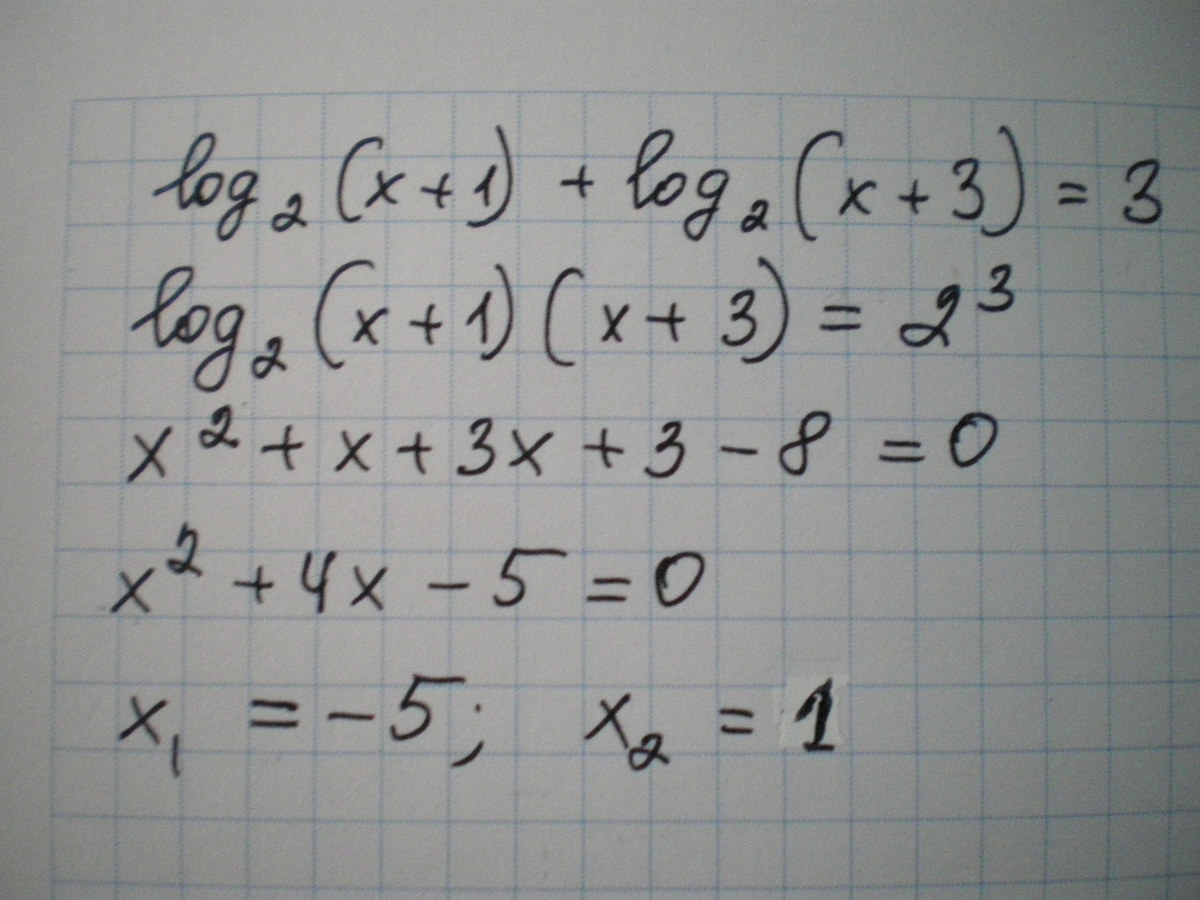 log₂(x+1) + log₂(x+3) = 3
log₂(x+1)(x+3) = 2³
x² + x + 3x + 3 - 8 = 0
x² + 4x - 5 = 0
x₁ = -5; x₂ = 1